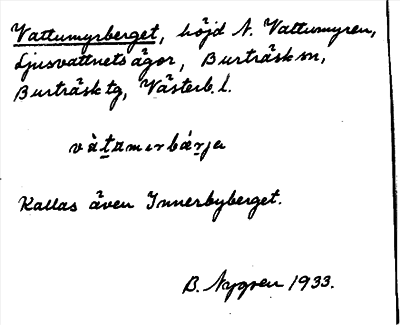 Vattumyrberget, höjd N. Vattumyren,
Ljusvattnets ägor, Burträsk sn,
Burträsk tg, Västerb. l.
vàt̲amɩrbár̲ja
Kallas även Innerbyberget.
B. Nygren 1933.